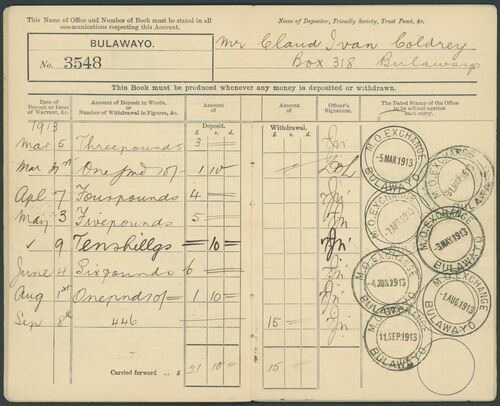 This Name of Office and Number of Book must be stated in all
communications respecting this Account.
BULAWAYO.
No. 3548
Name of Depositor, Friendly Society, Trust Fund, &c.
Mr Claud Ivan Coldrey
Box 318 Bulawayo
This Book must be produced whenever any money is deposited or withdrawn.
Date of Deposit or Issue of Warrant, &c. Amount of Deposit in Words, or Number of Withdrawal in Figures, &c. Amount of Deposit. £ s. d. Amount of Withdrawal. £ s. d. Officer's Signature. The Dated Stamp of the Office to be affixed against each entry.
1913
Mar 5 Three pounds 3
Mar One pnd 10/- 1 10
Apl 7 Four pounds 4
May 3 Five pounds 5
✓ 9 Ten shillgs 10
June 4 Six pounds 6
Aug 1st One pnd 10/- 1 10
Sep 8th 446 15
Carried forward ... £ 21 10 15
M.O. EXCHANGE
-5 MAR 1913
BULAWAYO
M.O. EXCHANGE
BULAWAYO
M.O. EXCHANGE
BULAWAYO
M.O. EXCHANGE
-3 MAY 1913
BULAWAYO
M.O. EXCHANGE
-4 JUN 1913
BULAWAYO
M.O. EXCHANGE
-1 AUG 1913
BULAWAYO
M.O. EXCHANGE
11 SEP 1913
BULAWAYO